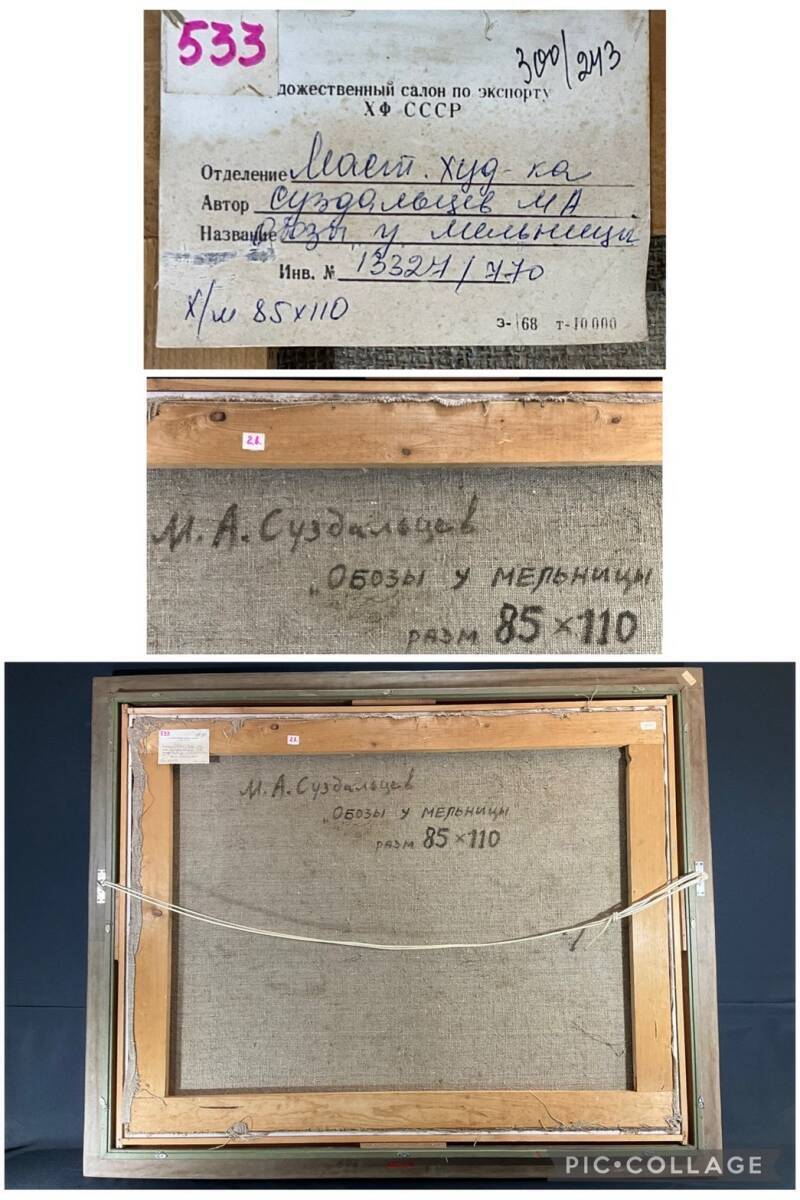 533
300/243
дожественный салон по экспорту
ХФ СССР
Отделение Маст. худ-ка
Автор Суздальцев МА
Название Обозы у мельницы
Инв. № 13327/770
Х/м 85х110
З-168 т-10000
М.А.Суздальцев
„Обозы у мельницы
разм 85×110
533
М.А.Суздальцев
„Обозы у мельницы"
разм 85×110
PIC•COLLAGE